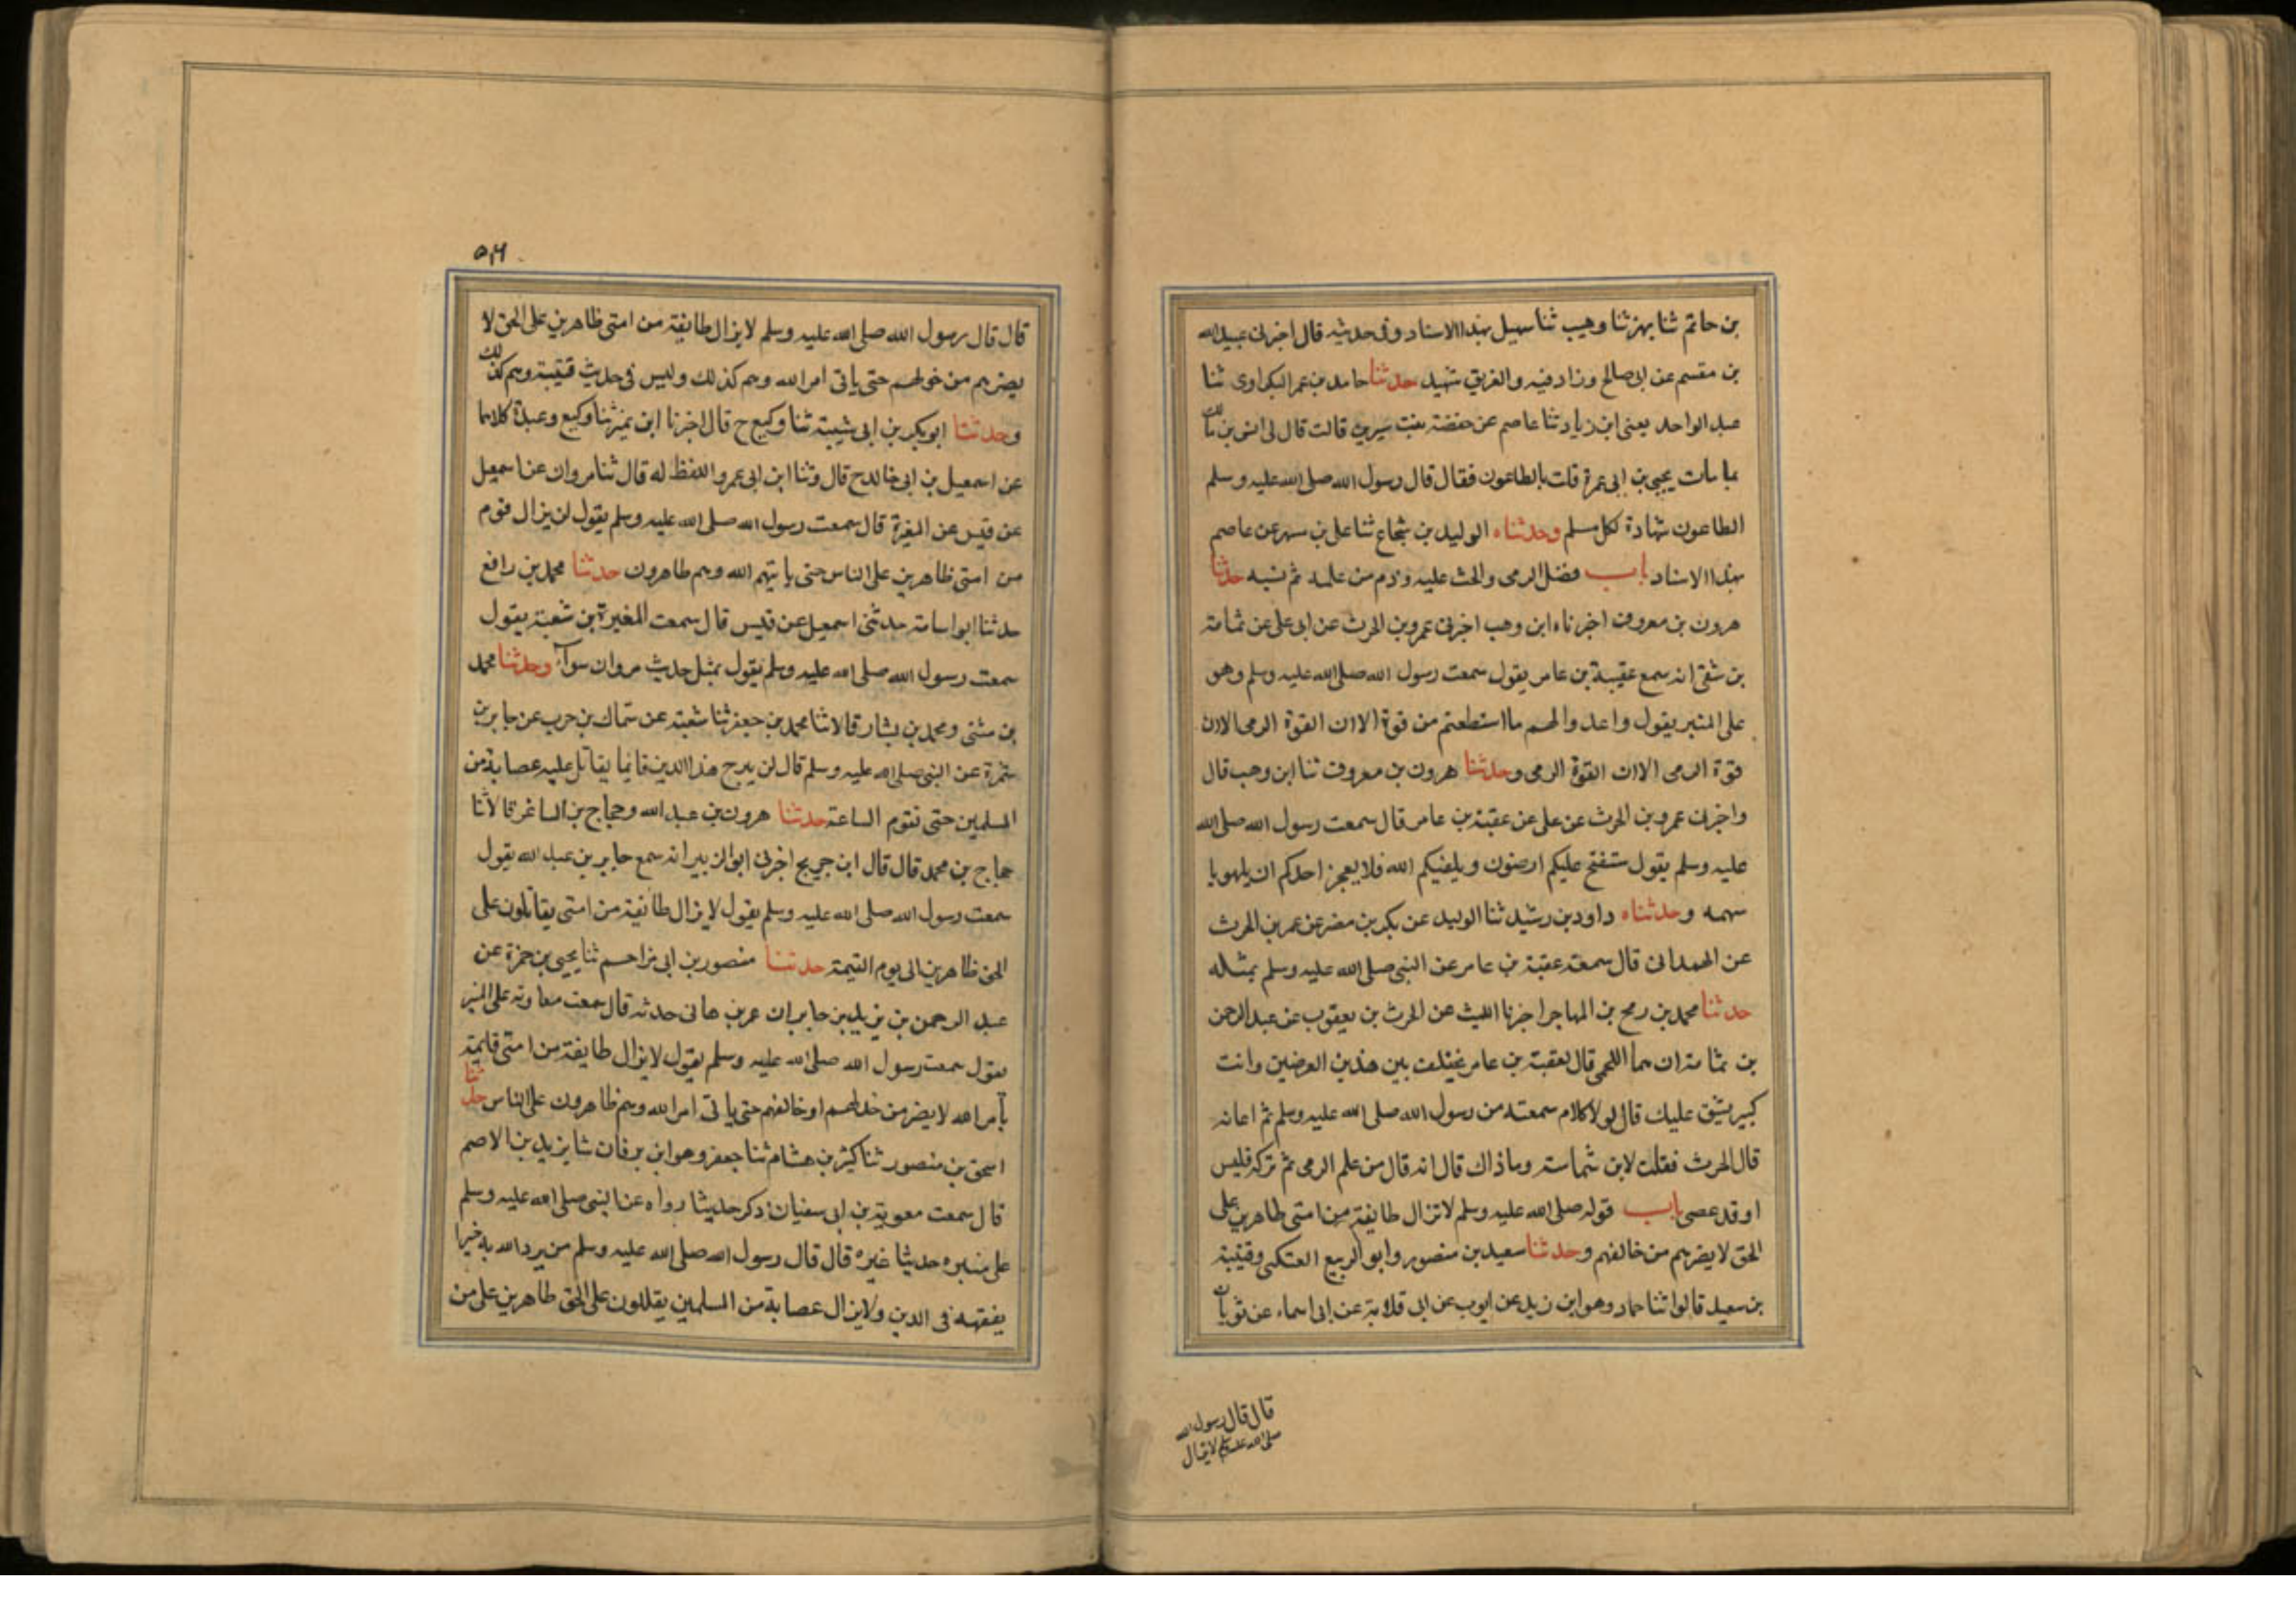 بن حاتم ثنا بهز ثنا وهيب ثنا سهيل بهذا الاسناد وفى حديثه قال اخبرنى عبيد الله
بن مقسم عن ابى صالح وزاد فيه والغريق شهيد حدثنا حامد بن عمر البكراوى ثنا
عبد الواحد يعنى ابن زياد ثنا عاصم عن حفصة بنت سيرين قالت قال لى انس بن مالك
بما مات يحيى بن ابى عمرة قلت بالطاعون فقال قال رسول الله صلى الله عليه وسلم
الطاعون شهادة لكل مسلم وحدثناه الوليد بن شجاع ثنا على بن مسهر عن عاصم
بهذا الاسناد باب فضل الرمى والحث عليه وذم من علمه ثم نسيه حدثنا
هرون بن معروف اخبرناه ابن وهب اخبرنى عمرو بن الحرث عن ابى على عن ثمامة
بن شفى انه سمع عقبة بن عامر يقول سمعت رسول الله صلى الله عليه وسلم وهو
على المنبر يقول واعدوا لهم ما استطعتم من قوة الا ان القوة الرمى الا ان
قوة الرمى الا ان القوة الرمى وحدثنا هرون بن معروف ثنا ابن وهب قال
واخبرنى عمرو بن الحرث عن على عن عقبة بن عامر قال سمعت رسول الله صلى الله
عليه وسلم يقول ستفتح عليكم ارضون ويكفيكم الله فلا يعجز احدكم ان يلهو با
سهمه وحدثناه داود بن رشيد ثنا الوليد عن بكر بن مضر عن عمر بن الحرث
عن الهمدانى قال سمعت عقبة بن عامر عن النبى صلى الله عليه وسلم بمثله
حدثنا محمد بن رمح بن المهاجر اخبرنا الليث عن الحرث بن يعقوب عن عبد الرحمن
بن شماسة ان فقيما اللخمى قال لعقبة بن عامر تختلف بين هذين الغرضين وانت
كبير يشق عليك قال لولا كلام سمعته من رسول الله صلى الله عليه وسلم ثم اعانه
قال الحرث فقلت لابن شماسة وما ذاك قال انه قال من علم الرمى ثم تركه فليس
او قد عصى باب قوله صلى الله عليه وسلم لا تزال طايفة من امتى ظاهرين على
الحق لا يضرهم من خالفهم وحدثنا سعيد بن منصور وابو الربيع العتكى وقتيبة
بن سعيد قالوا ثنا حماد وهو ابن زيد عن ايوب عن ابى قلابة عن ابى اسماء عن ثوبان
قال قال رسول الله
صلى الله عليه وسلم لا يزال
٥١٦
قال قال رسول الله صلى الله عليه وسلم لا يزال طايفة من امتى ظاهرين على الحق لا
يضرهم من خذلهم حتى ياتى امر الله وهم كذلك وليس فى حديث قتيبة وهم كذلك
وحدثنا ابو بكر بن ابى شيبة ثنا وكيع ح قال اخبرنا ابن نمير ثنا وكيع وعبدة كلاهما
عن اسمعيل بن ابى خالد ح قال وثنا ابن ابى عمر واللفظ له قال ثنا مروان عن اسمعيل
عن قيس عن المغيرة قال سمعت رسول الله صلى الله عليه وسلم يقول لن يزال قوم
من امتى ظاهرين على الناس حتى ياتيهم الله وهم ظاهرون حدثنا محمد بن رافع
حدثنا ابو اسامة حدثنى اسمعيل عن قيس قال سمعت المغيرة بن شعبة يقول
سمعت رسول الله صلى الله عليه وسلم يقول بمثل حديث مروان سوآء وحدثنا محمد
بن مثنى ومحمد بن بشار قالا ثنا محمد بن جعفر ثنا شعبة عن سماك بن حرب عن جابر بن
سمرة عن النبى صلى الله عليه وسلم قال لن يبرح هذا الدين قائما يقاتل عليه عصابة من
المسلمين حتى تقوم الساعة حدثنا هرون بن عبد الله وحجاج بن الشاعر قالا ثنا
حجاج بن محمد قال قال ابن جريج اخبرنى ابو الزبير انه سمع جابر بن عبد الله يقول
سمعت رسول الله صلى الله عليه وسلم يقول لا يزال طائفة من امتى يقاتلون على
الحق ظاهرين الى يوم القيمة حدثنا منصور بن ابى مزاحم ثنا يحيى بن حمزة عن
عبد الرحمن بن يزيد بن جابر ان عمر بن هانى حدثه قال سمعت معاوية على المنبر
يقول سمعت رسول الله صلى الله عليه وسلم يقول لا يزال طايفة من امتى قايمة
بامر الله لا يضر من خذلهم او خالفهم حتى ياتى امر الله وهم ظاهرون على الناس حدثنا
اسحق بن منصور ثنا كثير بن هشام ثنا جعفر وهو ابن برقان ثنا يزيد بن الاصم
قال سمعت معوية بن ابى سفيان ذكر حديثا رواه عن النبى صلى الله عليه وسلم
على منبره حديثا غيره قال قال رسول الله صلى الله عليه وسلم من يرد الله به خيرا
يفقهه فى الدين ولا يزال عصابة من المسلمين يقاتلون على الحق ظاهرين على من